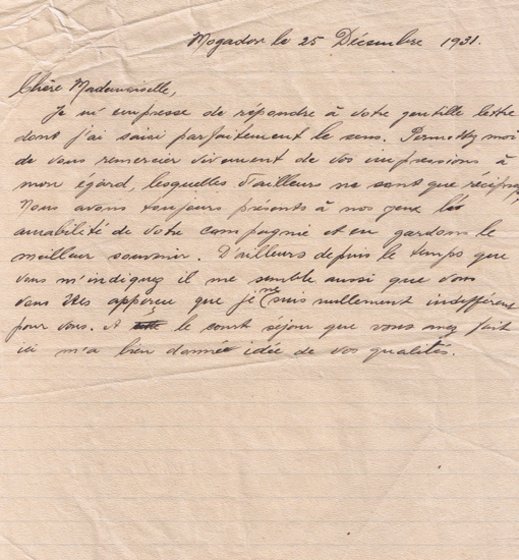 Mogador le 25 Décembre 1931.
Chère Mademoiselle,
Je m'empresse de répondre à votre gentille lettre
dont j'ai saisi parfaitement le sens. Permettez moi
de vous remercier vivement de vos impressions à
mon égard, lesquelles d'ailleurs ne sont que réciproq
Nous avons toujours présents à nos yeux les
amabilité de votre compagnie et en gardons le
meilleur souvenir. D'ailleurs depuis le temps que
vous m'indiquez il me semble aussi que vous
vous êtes apperçu que je ne suis nullement indifférent
pour vous. A le court séjour que vous avez fait
ici m'a bien donnée idée de vos qualités.